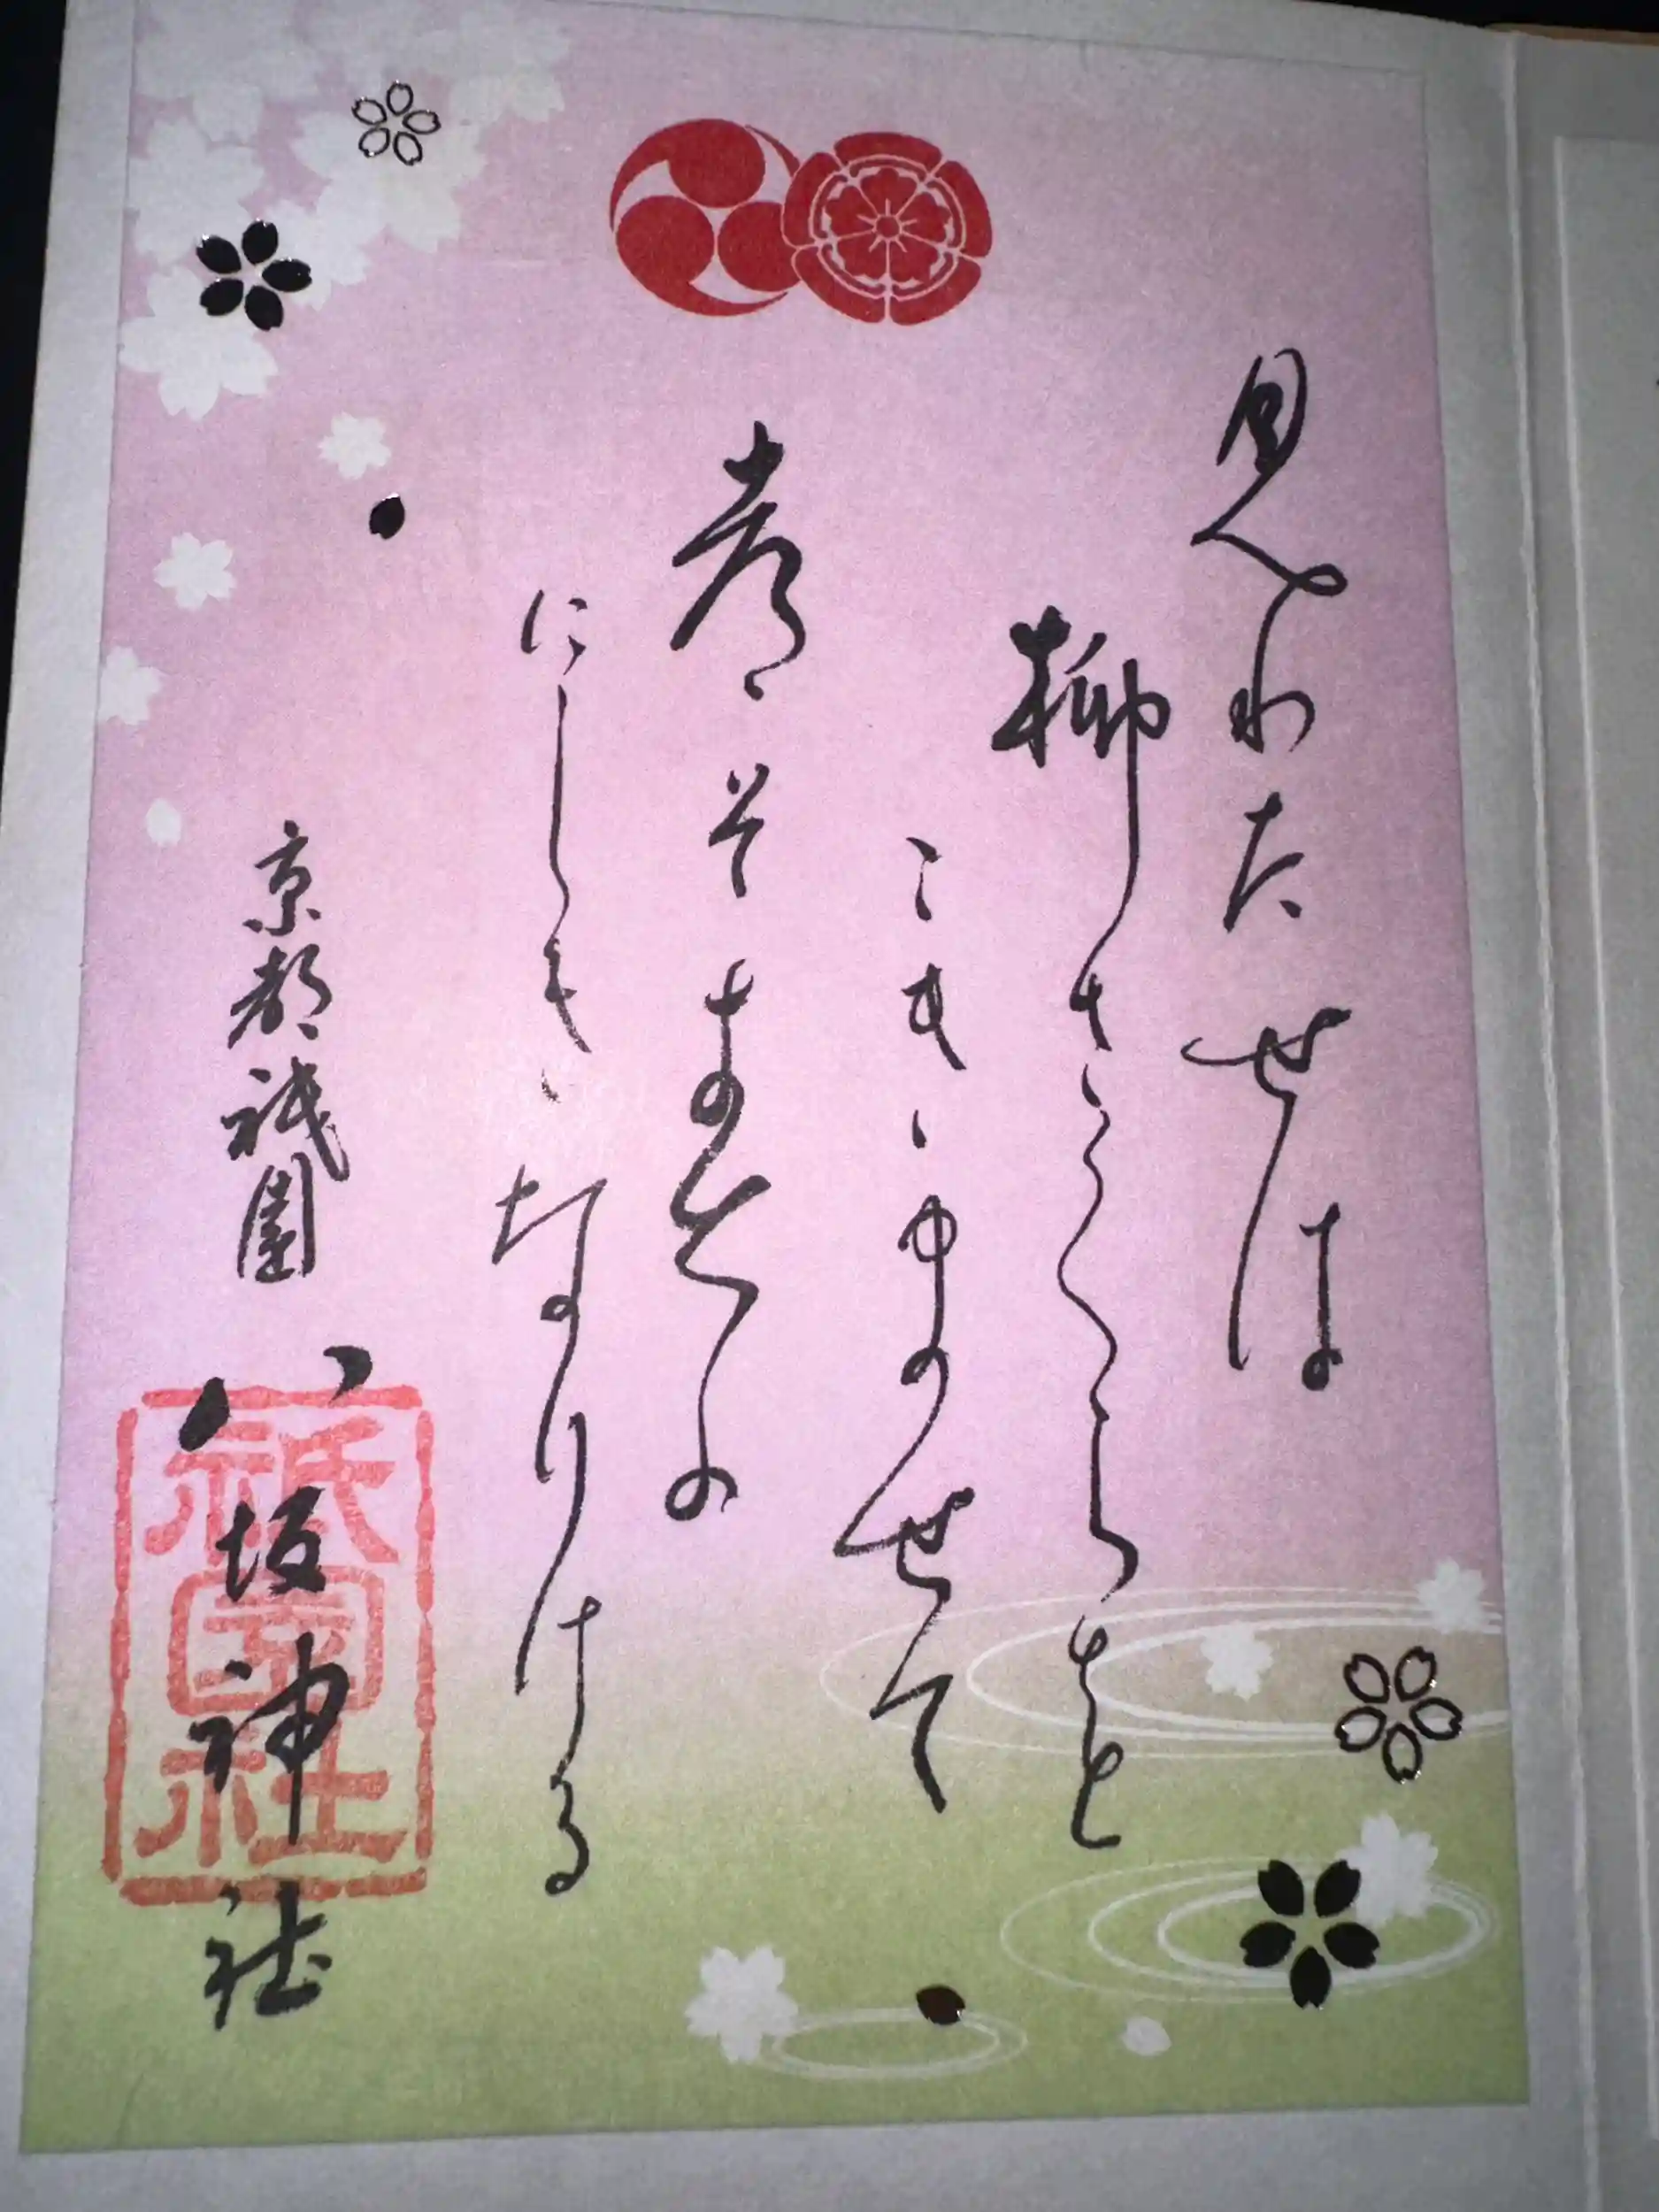 見わたせは
柳さくらを
こきませて
都そはるの
にしきなりける
京都祇園 八坂神社
祇園社